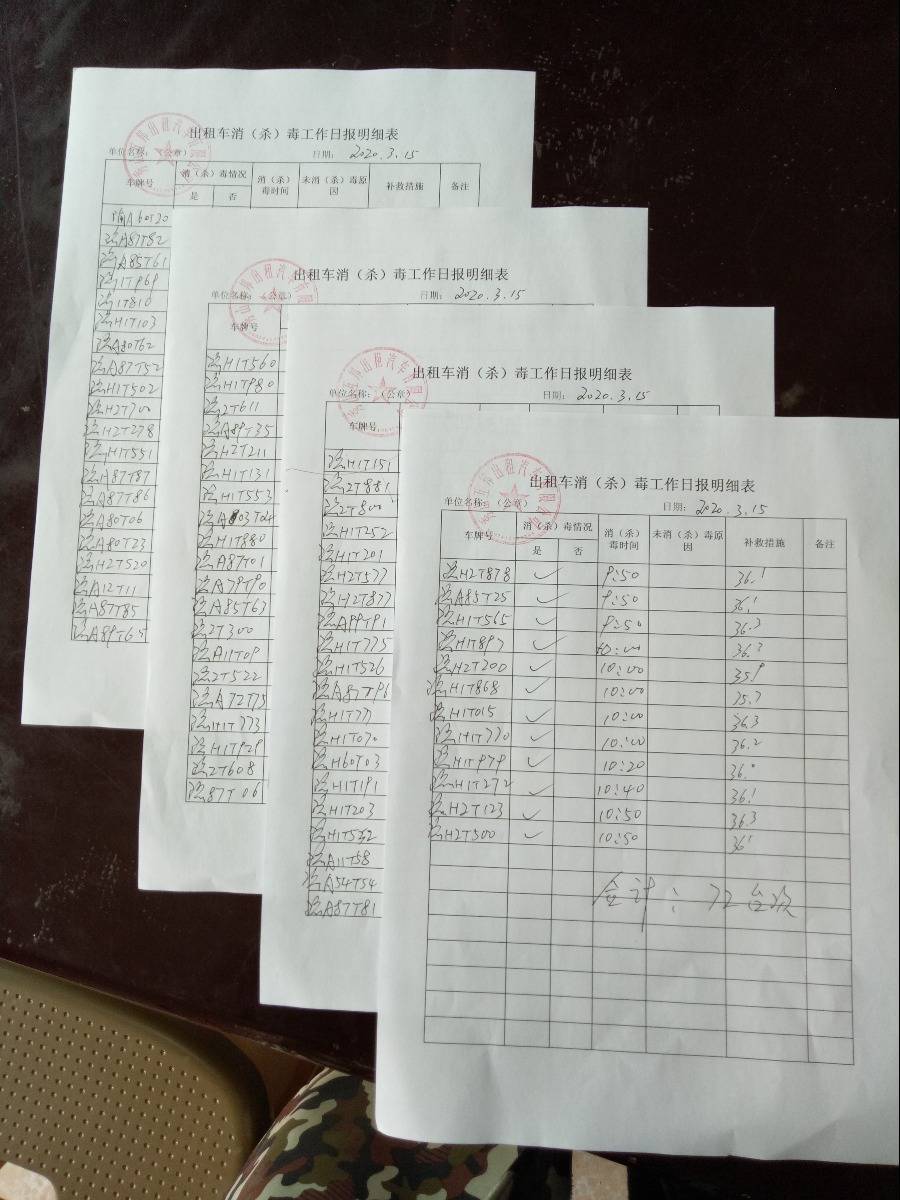 出租车消（杀）毒工作日报明细表
单位名称：（公章） 日期： 2020.3.15
车牌号 消（杀）毒情况 消（杀）毒时间 未消（杀）毒原因 补救措施 备注
是 否
A60T20
A87T82
A85T61
1T969
1T810
H1T103
A80T62
A87T52
H1T502
H2T700
H2T278
H1T551
A87T87
A87T86
A80T06
A80T23
H2T520
A12T11
A87T85
A89T65
出租车消（杀）毒工作日报明细表
单位名称：（公章） 日期： 2020.3.15
车牌号
H1T560
H1T980
2T611
A89T35
H2T211
H1T131
H1T553
A03T24
H1T880
A87T01
A79T90
A85T63
2T300
A11T09
2T522
A72T15
H1T773
H1T929
2T608
87T06
出租车消（杀）毒工作日报明细表
单位名称：（公章） 日期： 2020.3.15
车牌号
H1T151
2T881
2T800
H1T252
H1T201
H2T577
H2T877
A99T91
H1T775
H1T526
A87T96
H1T77
H1T070
H60T03
H1T191
H1T203
H1T532
A11T58
A54T54
A87T81
出租车消（杀）毒工作日报明细表
单位名称：（公章） 日期： 2020.3.15
车牌号 消（杀）毒情况 消（杀）毒时间 未消（杀）毒原因 补救措施 备注
是 否
H2T878 ✓ 9:50 36.1
A85T25 ✓ 9:50 36.1
H1T565 ✓ 9:50 36.3
H1T897 ✓ 10:00 36.3
H2T200 ✓ 10:00 35.9
H1T868 ✓ 10:00 35.7
H1T015 ✓ 10:00 36.3
H1T770 ✓ 10:00 36.2
H1T979 ✓ 10:20 36.0
H1T272 ✓ 10:40 36.1
H2T123 ✓ 10:50 36.3
H2T500 ✓ 10:50 36.1
合计：72台次